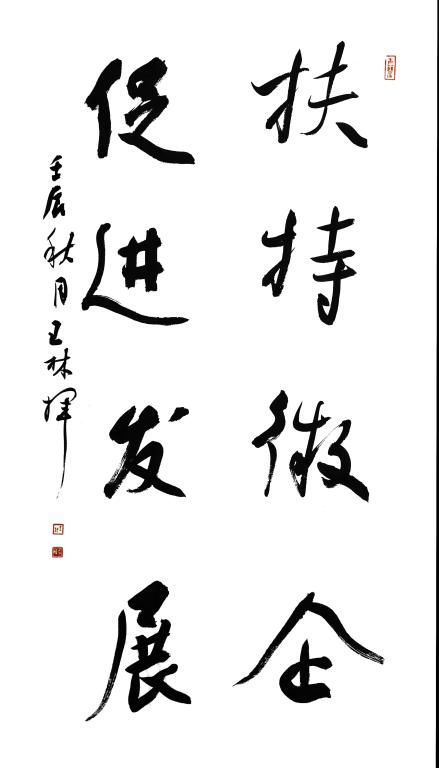 扶持微企
促进发展
壬辰秋月王林挥